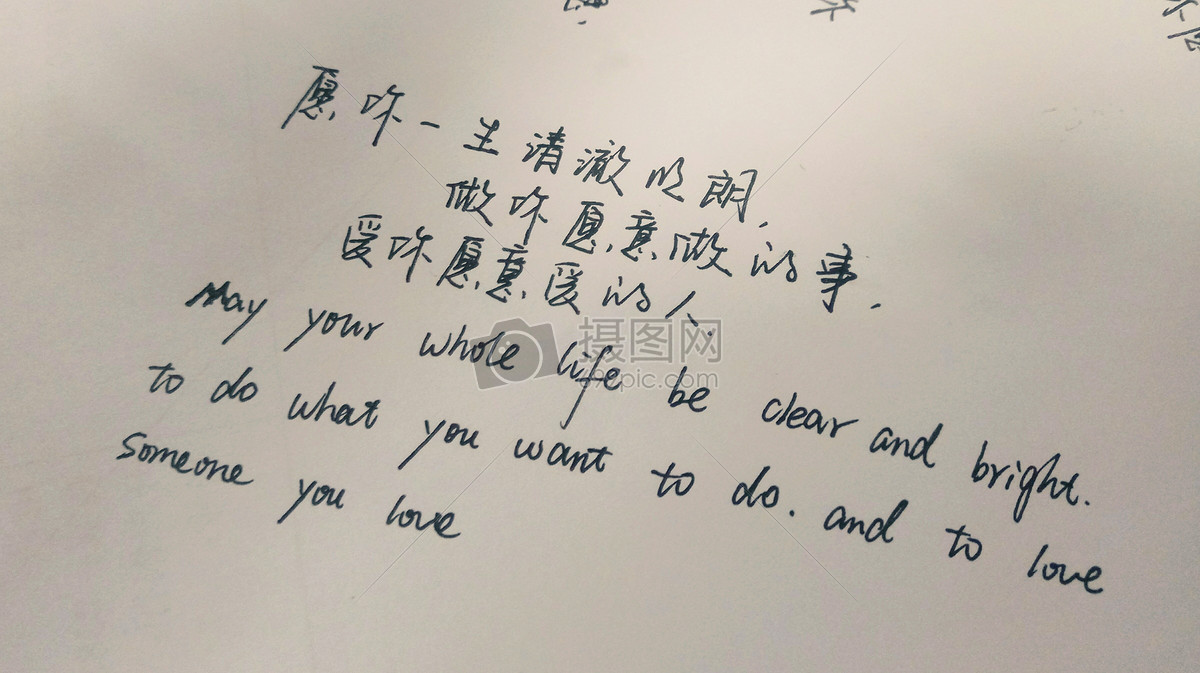 愿你一生清澈明朗,
做你愿意做的事.
爱你愿意爱的人.
May your whole life be clear and bright.
to do what you want to do. and to love
someone you love
摄图网